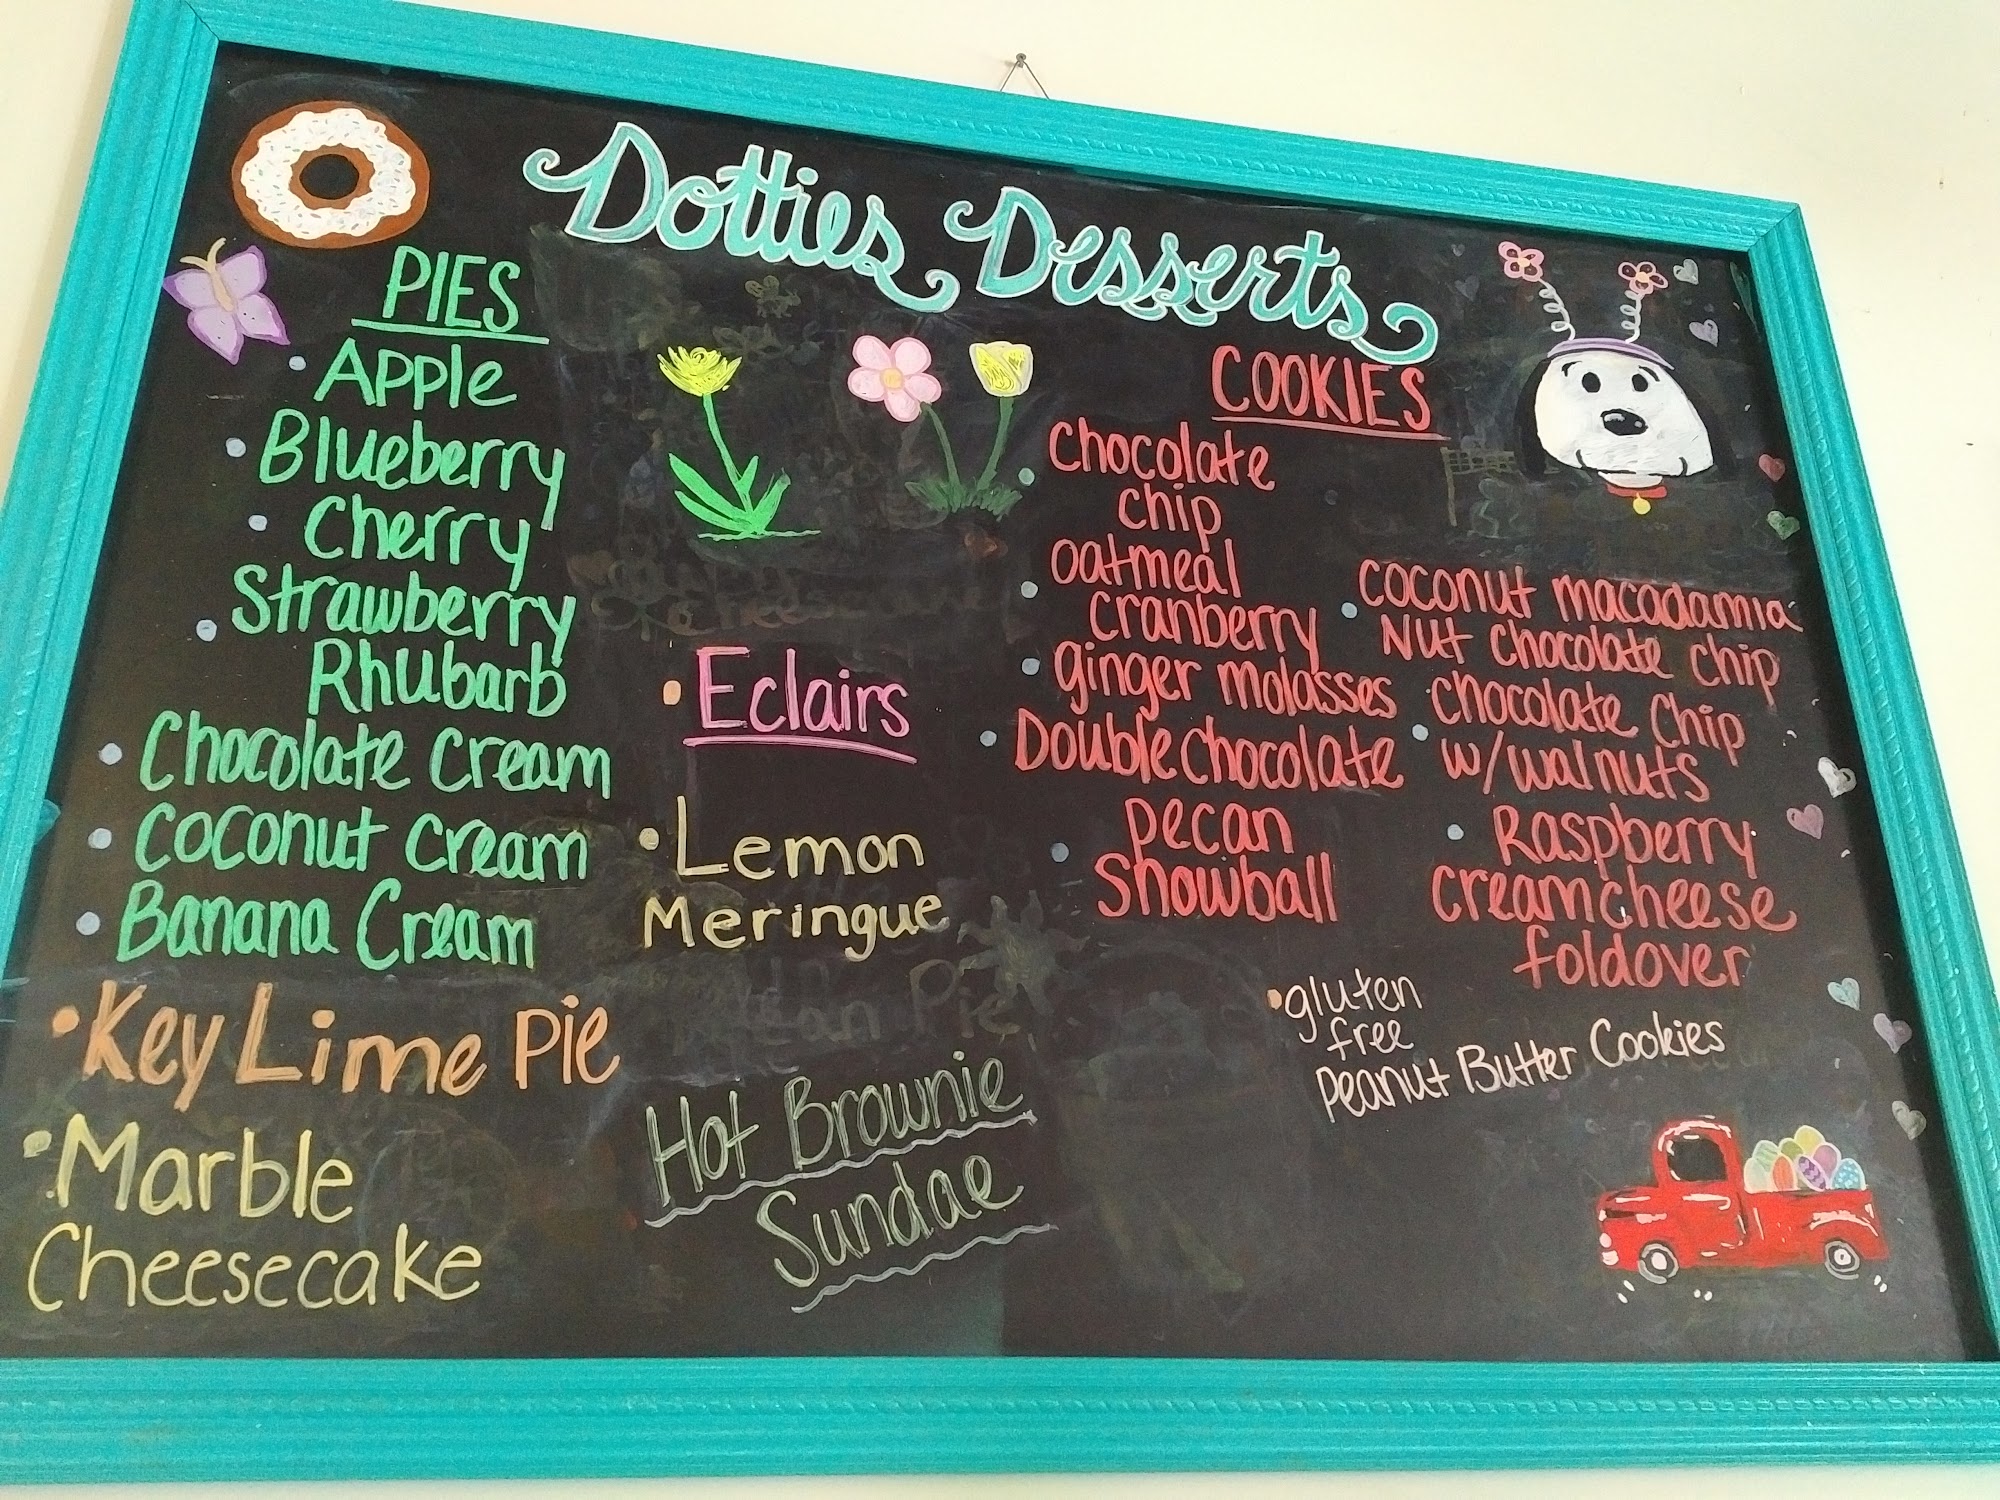 Dotties Desserts
PIES
• Apple
• Blueberry
• Cherry
• Strawberry
Rhubarb
• Chocolate Cream
• Coconut Cream
• Banana Cream
• Key Lime Pie
• Marble
Cheesecake
• Eclairs
• Lemon
Meringue
Hot Brownie
Sundae
COOKIES
• Chocolate
chip
• oatmeal
cranberry
• ginger molasses
• Double chocolate
• pecan
Snowball
• coconut macadamia
Nut chocolate chip
• chocolate chip
w/walnuts
• Raspberry
creamcheese
foldover
• gluten
free
peanut Butter Cookies